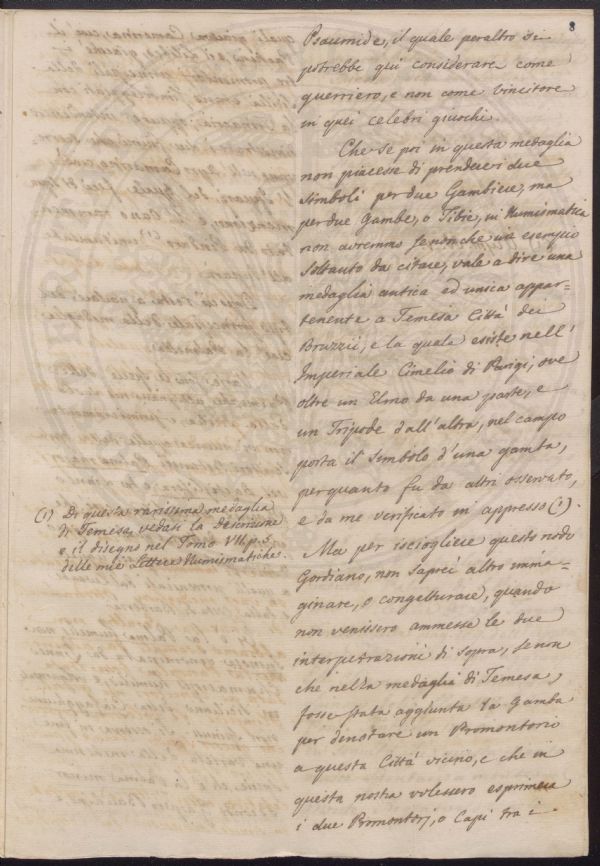 8
Psaumide, il quale peraltro si
potrebbe qui considerare come
guerriero, e non come vincitore
in quei celebri giuochi.
Che se poi in questa medaglia
non piacesse di prendere i due
Simboli per due Gambiere, ma
per due Gambe, o Tibie, in Numismatica
non avremmo se non che un esempio
soltanto da citare, vale a dire una
medaglia antica ed unica appar=
tenente a Temesa Città dei
Bruzzii, e la quale esiste nell'
Imperiale Cimelio di Parigi, ove
oltre un Elmo da una parte, e
un Tripode dall'altra, nel campo
porta il simbolo d'una gamba,
perquanto fu da altri osservato,
e da me verificato in appresso (1).
Ma per isciogliere questo nodo
Gordiano, non saprei altro imma=
ginare, o congetturare, quando
non venissero ammesse le due
interpetrazioni di sopra, se non
che nella medaglia di Temesa,
fosse stata aggiunta la Gamba
per denotare un Promontorio
a questa Città vicino, e che in
questa nostra volessero esprimersi
i due Promontorj, o Capi tra i
(1) Di questa rarissima medaglia
di Temesa, vedasi la descrizione
e il disegno nel Tomo VII. p. 5.
delle mie Lettere Numismatiche.